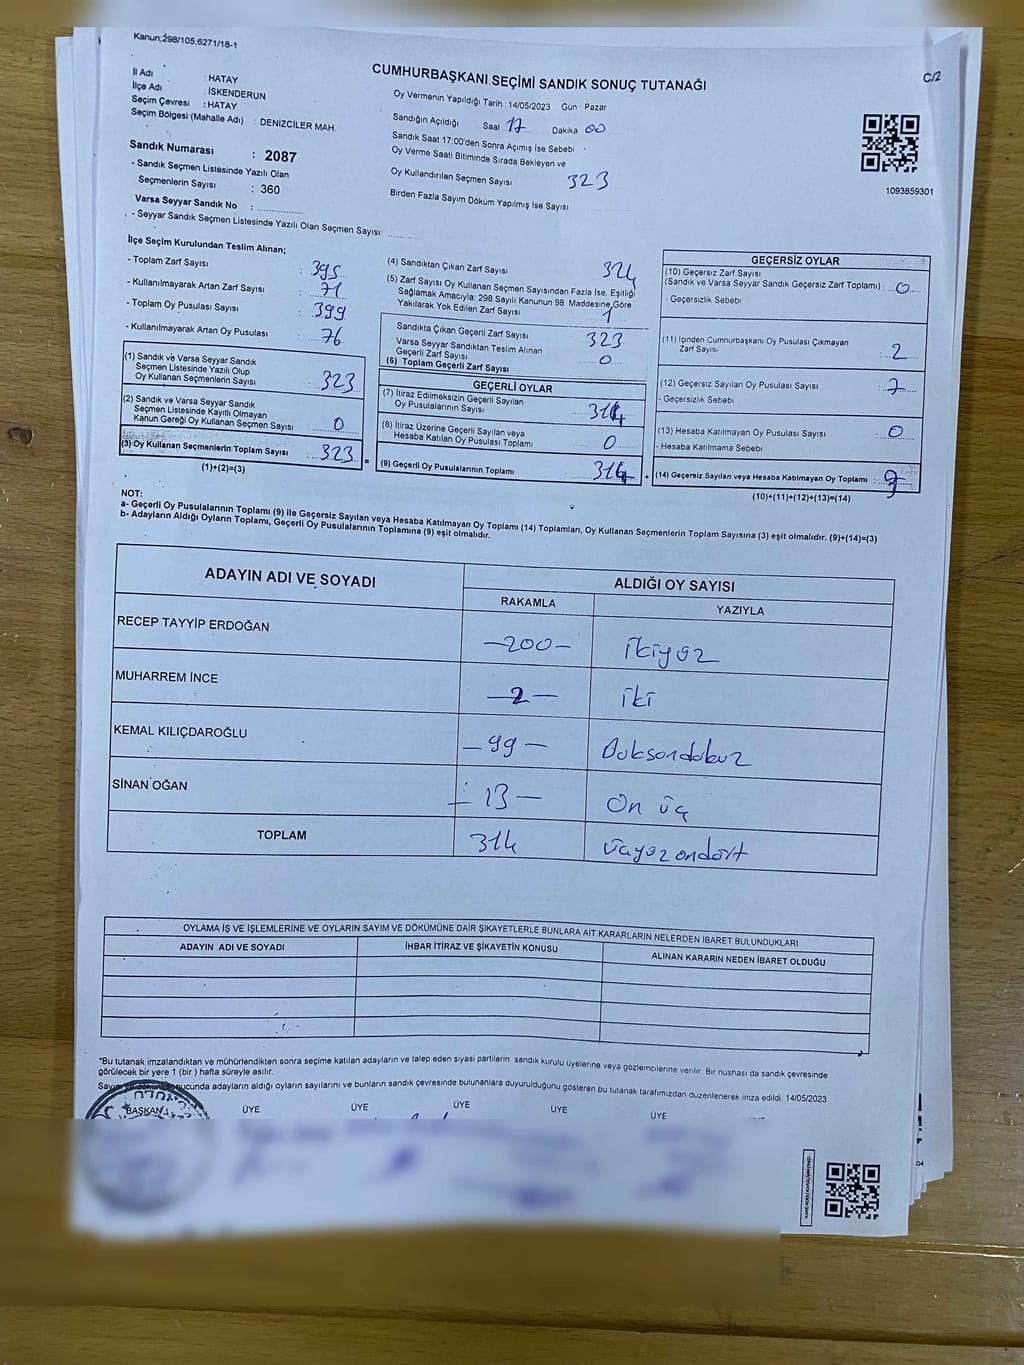 Kanun;298/105,6271/18-1
C/2
CUMHURBAŞKANI SEÇİMİ SANDIK SONUÇ TUTANAĞI
İl Adı : HATAY
İlçe Adı : İSKENDERUN
Seçim Çevresi : HATAY
Seçim Bölgesi (Mahalle Adı) : DENİZCİLER MAH.
Sandık Numarası : 2087
- Sandık Seçmen Listesinde Yazılı Olan
Seçmenlerin Sayısı : 360
Varsa Seyyar Sandık No :
- Seyyar Sandık Seçmen Listesinde Yazılı Olan Seçmen Sayısı:
Oy Vermenin Yapıldığı Tarih : 14/05/2023 Gün Pazar
Sandığın Açıldığı Saat 17 Dakika 00
Sandık Saat 17:00'den Sonra Açılmış İse Sebebi
Oy Verme Saati Bitiminde Sırada Bekleyen ve
Oy Kullandırılan Seçmen Sayısı 323
Birden Fazla Sayım Döküm Yapılmış İse Sayısı
1093859301
İlçe Seçim Kurulundan Teslim Alınan;
- Toplam Zarf Sayısı : 395
- Kullanılmayarak Artan Zarf Sayısı : 71
- Toplam Oy Pusulası Sayısı : 399
- Kullanılmayarak Artan Oy Pusulası : 76
(1) Sandık ve Varsa Seyyar Sandık
Seçmen Listesinde Yazılı Olup
Oy Kullanan Seçmenlerin Sayısı : 323
(2) Sandık ve Varsa Seyyar Sandık
Seçmen Listesinde Kayıtlı Olmayan
Kanun Gereği Oy Kullanan Seçmen Sayısı : 0
(3) Oy Kullanan Seçmenlerin Toplam Sayısı : 323
(1)+(2)=(3)
(4) Sandıktan Çıkan Zarf Sayısı 324
(5) Zarf Sayısı Oy Kullanan Seçmen Sayısından Fazla İse, Eşitliği
Sağlamak Amacıyla; 298 Sayılı Kanunun 98. Maddesine Göre
Yakılarak Yok Edilen Zarf Sayısı 1
Sandıkta Çıkan Geçerli Zarf Sayısı 323
Varsa Seyyar Sandıktan Teslim Alınan
Geçerli Zarf Sayısı 0
(6) Toplam Geçerli Zarf Sayısı
GEÇERLİ OYLAR
(7) İtiraz Edilmeksizin Geçerli Sayılan
Oy Pusulalarının Sayısı : 314
(8) İtiraz Üzerine Geçerli Sayılan veya
Hesaba Katılan Oy Pusulası Toplamı : 0
(9) Geçerli Oy Pusulalarının Toplamı : 314
GEÇERSİZ OYLAR
(10) Geçersiz Zarf Sayısı
(Sandık ve Varsa Seyyar Sandık Geçersiz Zarf Toplamı) : 0
- Geçersizlik Sebebi
(11) İçinden Cumhurbaşkanı Oy Pusulası Çıkmayan
Zarf Sayısı : 2
(12) Geçersiz Sayılan Oy Pusulası Sayısı : 7
- Geçersizlik Sebebi
(13) Hesaba Katılmayan Oy Pusulası Sayısı : 0
- Hesaba Katılmama Sebebi
(14) Geçersiz Sayılan veya Hesaba Katılmayan Oy Toplamı : 9
(10)+(11)+(12)+(13)=(14)
NOT:
a- Geçerli Oy Pusulalarının Toplamı (9) ile Geçersiz Sayılan veya Hesaba Katılmayan Oy Toplamı (14) Toplamları, Oy Kullanan Seçmenlerin Toplam Sayısına (3) eşit olmalıdır. (9)+(14)=(3)
b- Adayların Aldığı Oyların Toplamı, Geçerli Oy Pusulalarının Toplamına (9) eşit olmalıdır.
ADAYIN ADI VE SOYADI ALDIĞI OY SAYISI
RAKAMLA YAZIYLA
RECEP TAYYİP ERDOĞAN —200— ikiyüz
MUHARREM İNCE —2— iki
KEMAL KILIÇDAROĞLU —99— Doksandokuz
SİNAN OĞAN —13— On üç
TOPLAM 314 üçyüz ondört
OYLAMA İŞ VE İŞLEMLERİNE VE OYLARIN SAYIM VE DÖKÜMÜNE DAİR ŞİKAYETLERLE BUNLARA AİT KARARLARIN NELERDEN İBARET BULUNDUKLARI
ADAYIN ADI VE SOYADI İHBAR İTİRAZ VE ŞİKAYETİN KONUSU ALINAN KARARIN NEDEN İBARET OLDUĞU
*Bu tutanak imzalandıktan ve mühürlendikten sonra seçime katılan adayların ve talep eden siyasi partilerin sandık kurulu üyelerine veya gözlemcilerine verilir. Bir nushası da sandık çevresinde
görülecek bir yere 1 (bir) hafta süreyle asılır.
Sayım ucunda adayların aldığı oyların sayılarını ve bunların sandık çevresinde bulunanlara duyurulduğunu gösteren bu tutanak tarafımızdan düzenlenerek imza edildi. 14/05/2023
BAŞKAN ÜYE ÜYE ÜYE ÜYE ÜYE